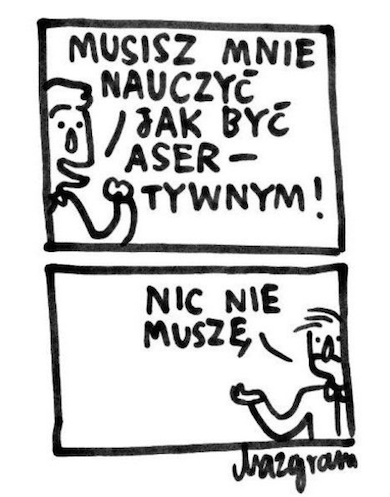 MUSISZ MNIE
NAUCZYĆ
JAK BYĆ
ASER-
TYWNYM!
NIC NIE
MUSZĘ
Mazgram